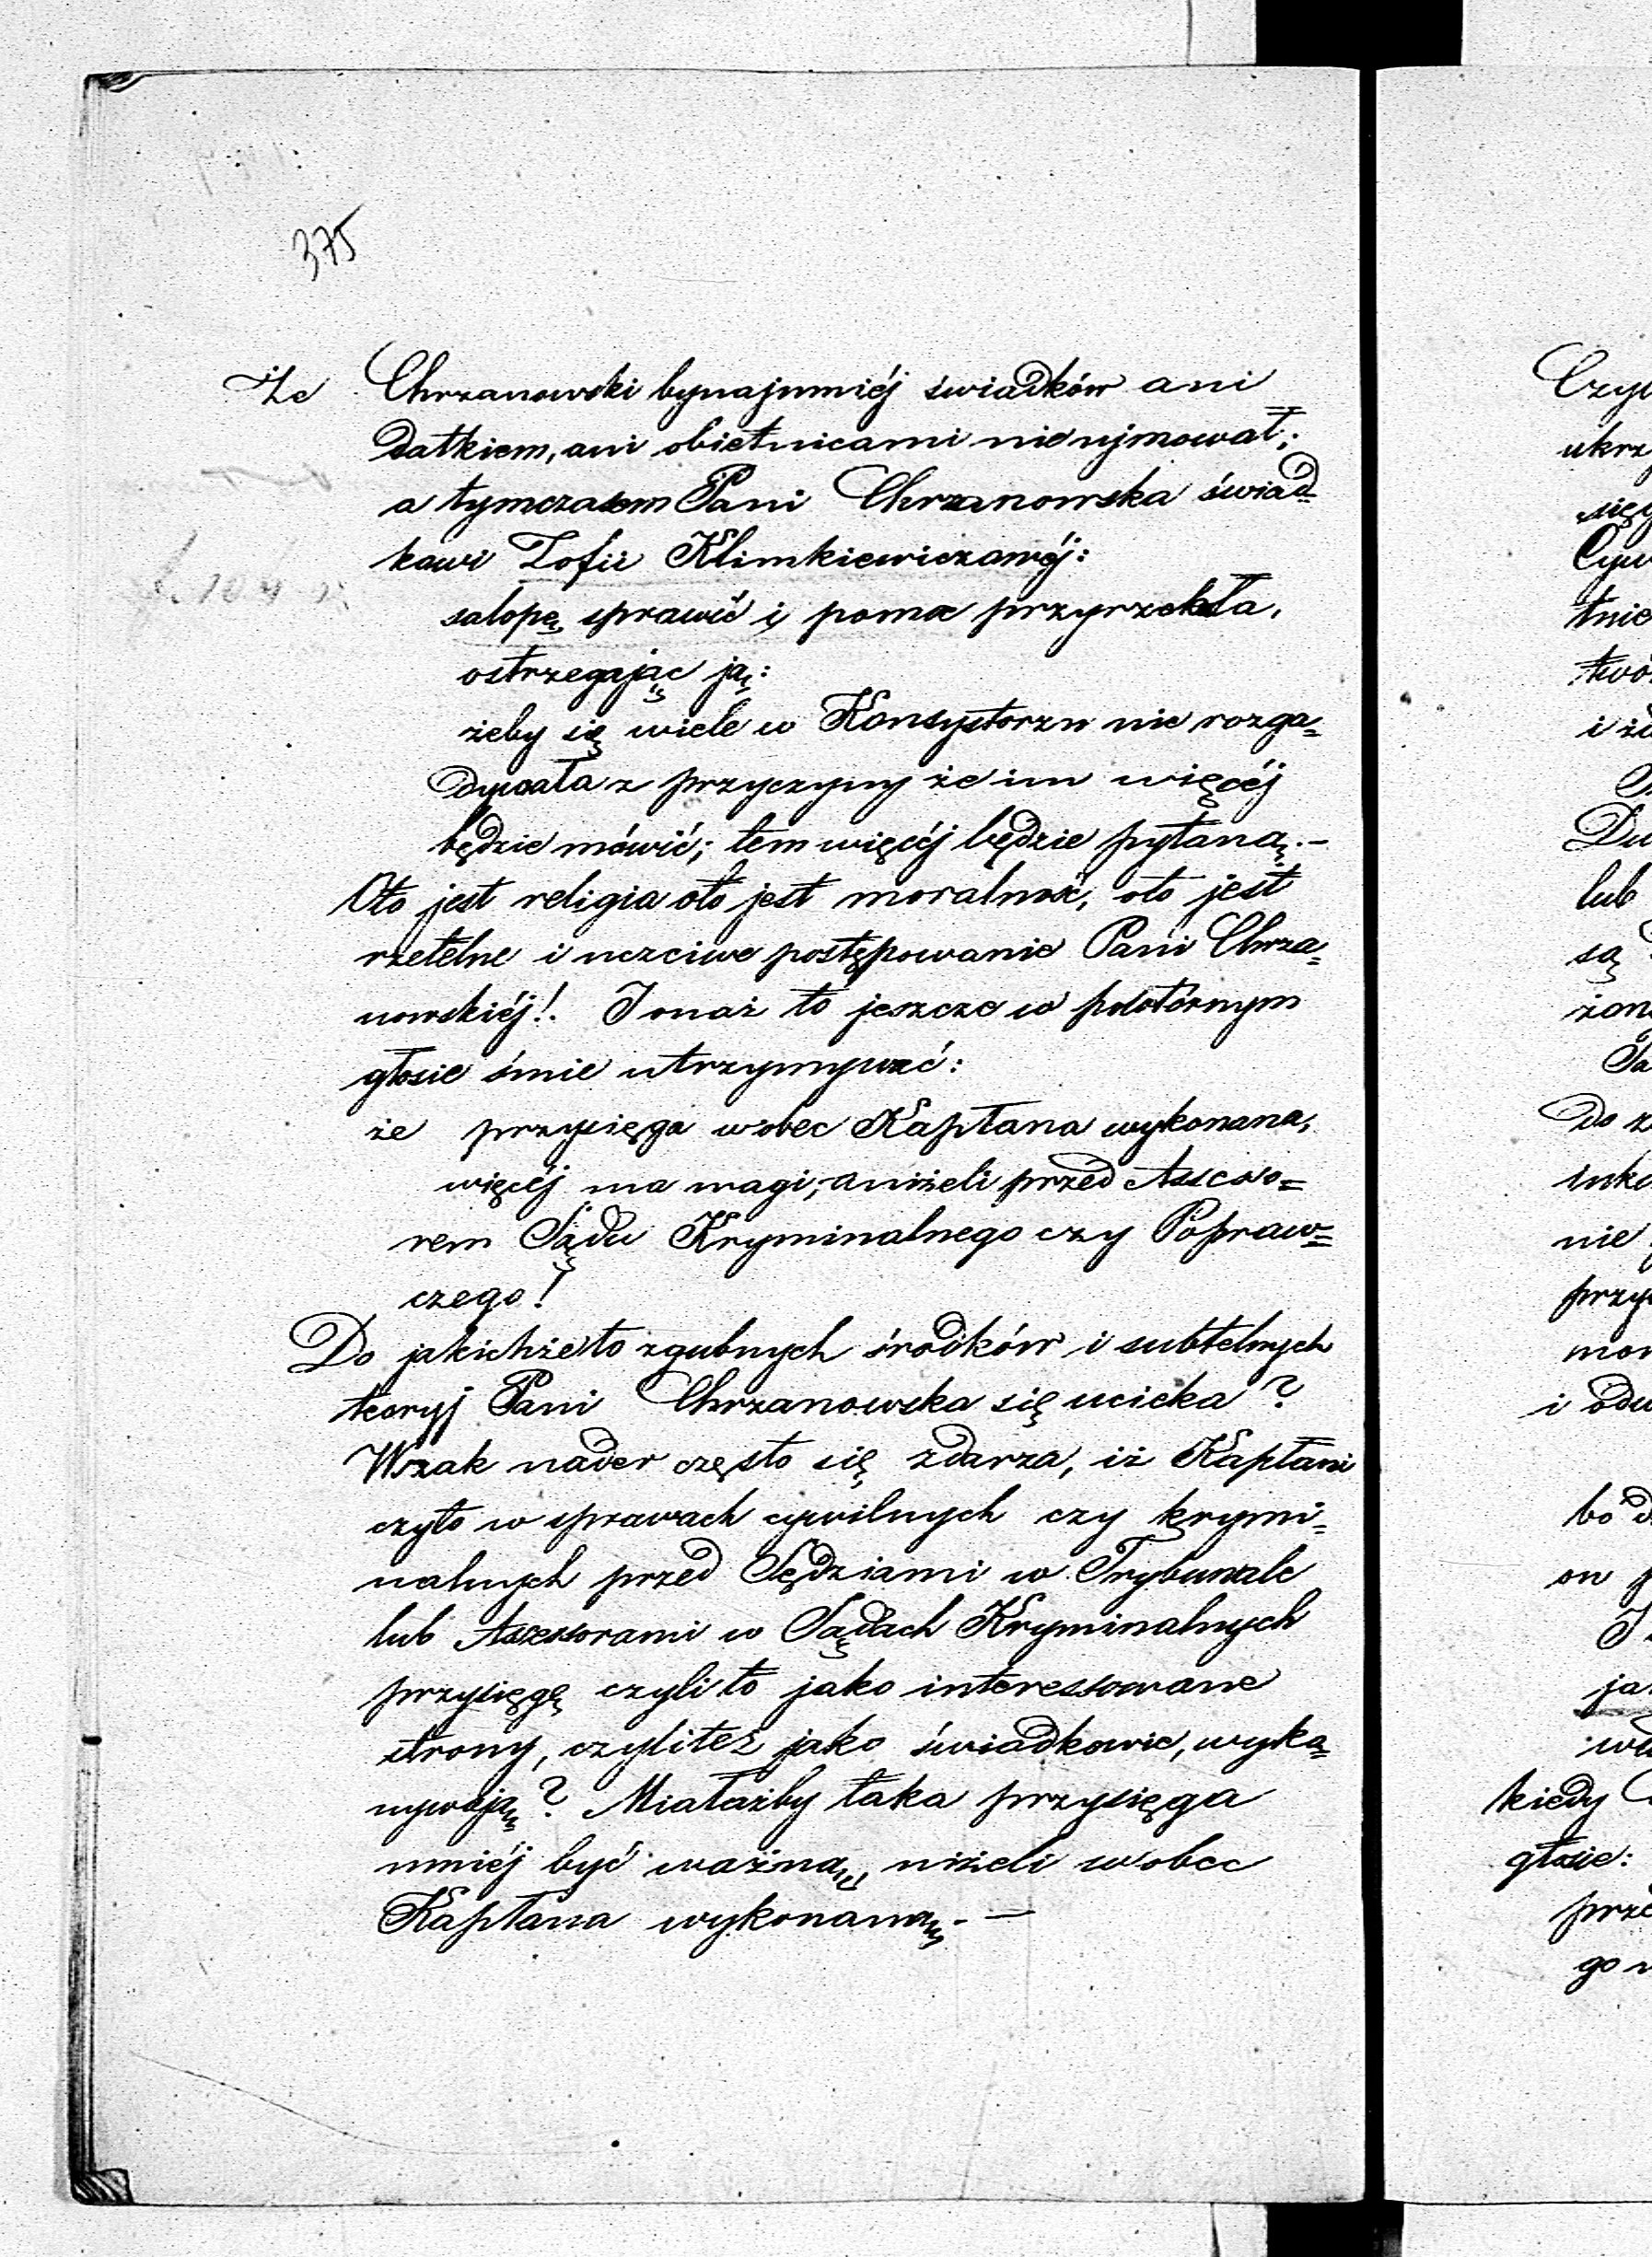 375
Że Chrzanowski bynajmniéj świadków ani
datkiem, ani obietnicami nie ujmował;
a tymczasem Pani Chrzanowska świad=
kowi Zofii Klimkiewiczowéj:
salopę sprawić i pomoc przyrzekła,
ostrzegając ją:
żeby się wiele w Konsystorzu nie rozga=
dywała z przyczyny że im więcéj
będzie mówić; tem więcéj będzie pytaną.—
Oto jest religia oto jest moralność, oto jest
rzetelne i uczciwe postępowanie Pani Chrza=
nowskiéj! I onaż to jeszcze w powtórnym
głosie śmie utrzymywać:
że przysięga wobec Kapłana wykonana,
więcéj ma wagi, aniżeli przed Assesso=
rem Sądu Kryminalnego czy Popraw=
czego!
Do jakichże to zgubnych środków i subtelnych
teoryj Pani Chrzanowska się ucieka?
Wszak nader często się zdarza, iż Kapłani
czyto w sprawach cywilnych czy krymi=
nalnych przed Sędziami w Trybunale
lub Assessorami w Sądach Kryminalnych
przysięgę czyli to jako interessowane
strony, czyliteż jako świadkowie, wyko=
nywają? Miałażby taka przysięga
mniéj być ważną, niżeli wobec
Kapłana wykonaną.—
ukrz
tnie
lub
są
nie
przy
i
on
kiedy
głosie: